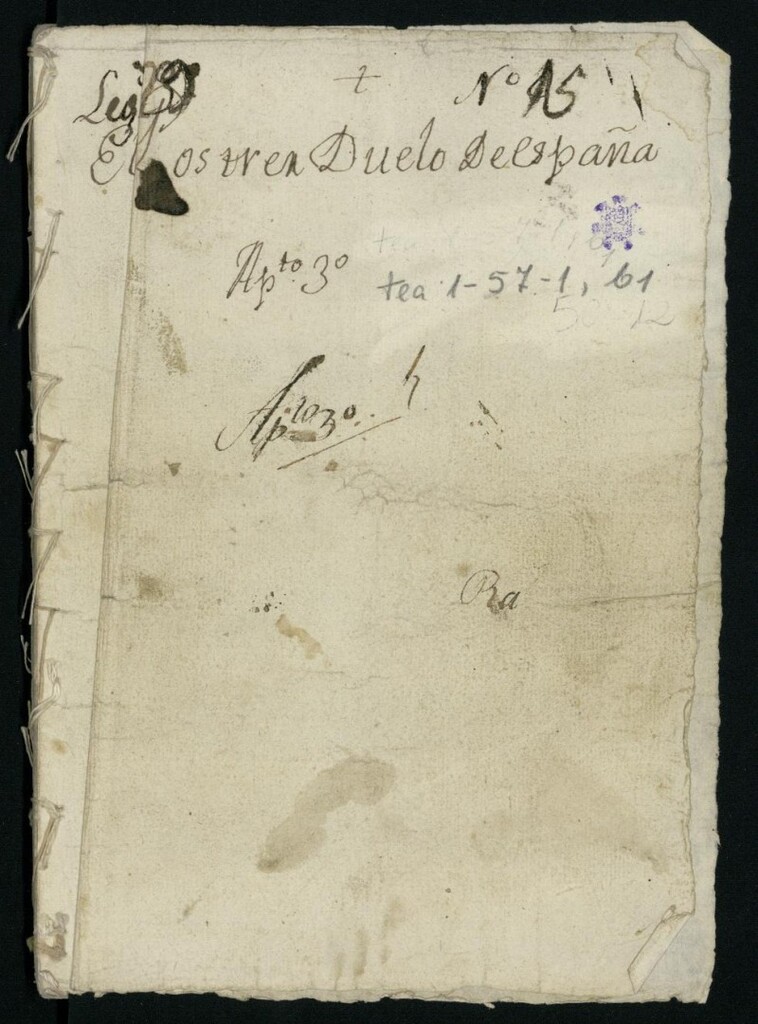 Leg.º + Nº 15
El Postrer Duelo De españa
Ap.to 3º
tea 1-57-1, b1
Ap.to 3º
Ra